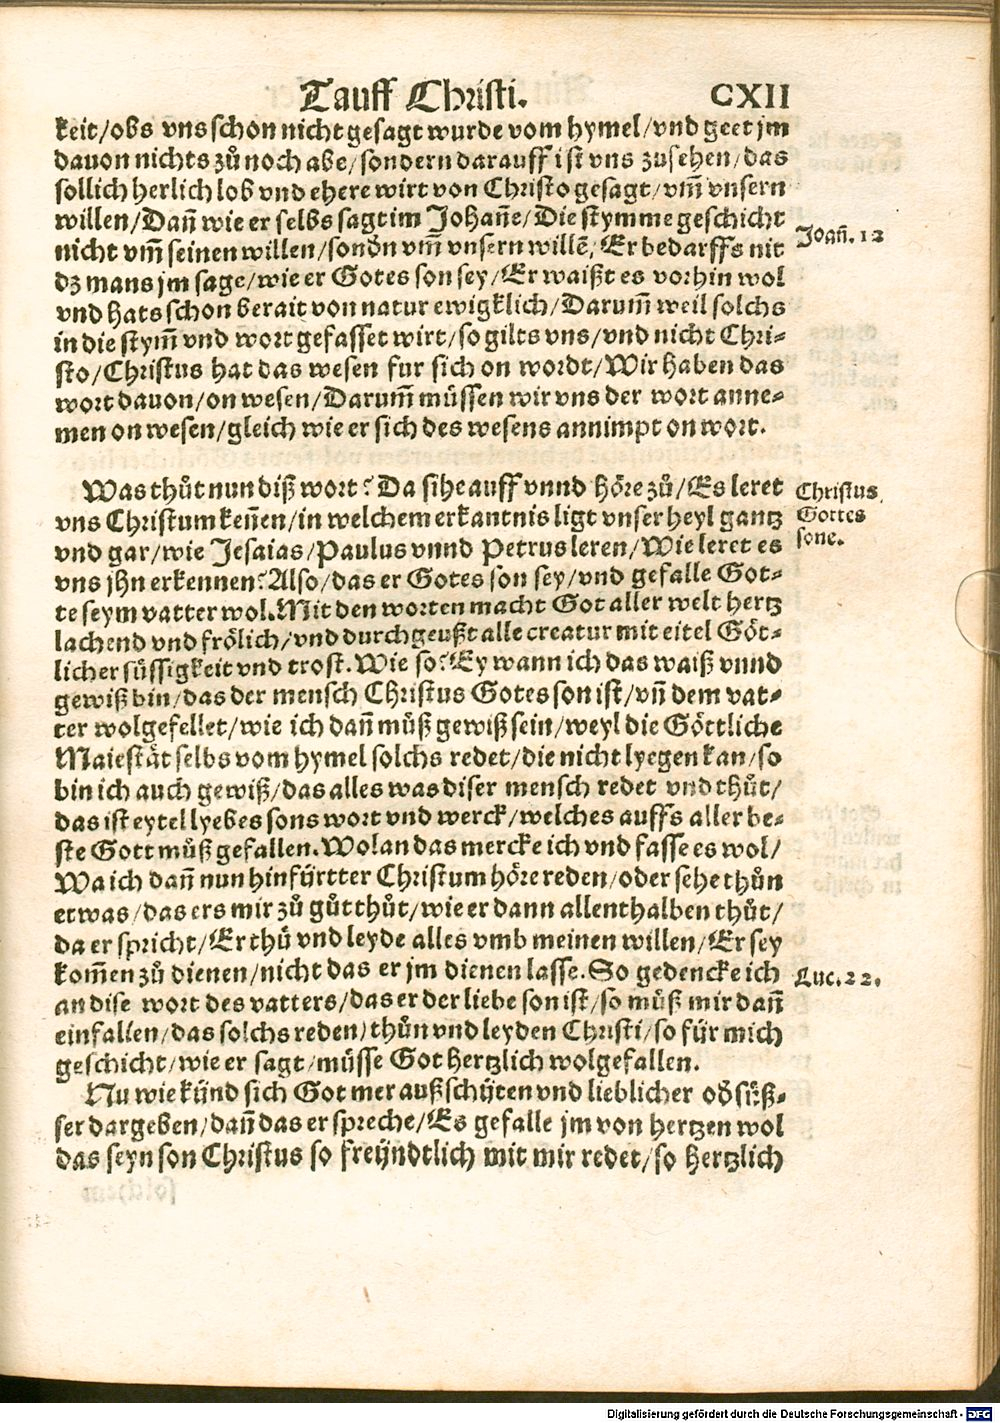 Tauff Christi. CXII
keit/obs vns schon nicht gesagt wurde vom hymel/vnd geet jm
dauon nichts zů noch abe/sondern darauff ist vns zusehen/das
sollich herlich lob vnd ehere wirt von Christo gesagt/vm̃ vnsern
willen/Dañ wie er selbs sagt im Johañe/Die stymme geschicht
nicht vm̃ seinen willen/sonđn vm̃ vnsern willẽ/Er bedarffs nit
Joañ. 12
dz mans jm sage/wie er Gotes son sey/Er waißt es vorhin wol
vnd hats schon berait von natur ewigklich/Darum̃ weil solchs
in die stym̃ vnd wort gefasset wirt/so gilts vns/vnd nicht Chri-
sto/Christus hat das wesen fur sich on wordt/Wir haben das
wort dauon/on wesen/Darum̃ müssen wir vns der wort anne-
men on wesen/gleich wie er sich des wesens annimpt on wort.
Was thůt nun diß wort? Da sihe auff vnnd höre zů/Es leret
Christus
Gottes
sone.
vns Christum keñen/in welchem erkantnis ligt vnser heyl gantz
vnd gar/wie Jesaias/Paulus vnnd Petrus leren/Wie leret es
vns jhn erkennen? Also/das er Gotes son sey/vnd gefalle Got-
te seym vatter wol. Mit den worten macht Got aller welt hertz
lachend vnd frölich/vnd durchgeußt alle creatur mit eitel Göt-
licher süssigkeit vnd trost. Wie so? Ey wann ich das waiß vnnd
gewiß bin/das der mensch Christus Gotes son ist/vñ dem vat-
ter wolgefellet/wie ich dañ můß gewiß sein/weyl die Göttliche
Maiestät selbs vom hymel solchs redet/die nicht lyegen kan/so
bin ich auch gewiß/das alles was diser mensch redet vnd thůt/
das ist eytel lyebes sons wort vnd werck/welches auffs aller be-
ste Gott můß gefallen. Wolan das mercke ich vnd fasse es wol/
Wa ich dañ nun hinfürtter Christum höre reden/oder sehe thůn
etwas/das ers mir zů gůt thůt/wie er dann allenthalben thůt/
da er spricht/Er thů vnd leyde alles vmb meinen willen/Er sey
kom̃en zů dienen/nicht das er jm dienen lasse. So gedencke ich
Luc. 22.
an dise wort des vatters/das er der liebe son ist/so můß mir dañ
einfallen/das solchs reden/thůn vnd leyden Christi/so für mich
geschicht/wie er sagt/müsse Got hertzlich wolgefallen.
Nu wie künd sich Got mer außschüten vnd lieblicher ođ süß-
ser dargeben/dañ das er spreche/Es gefalle jm von hertzen wol
das seyn son Christus so freündtlich mit mir redet/so hertzlich
Digitalisierung gefördert durch die Deutsche Forschungsgemeinschaft - DFG